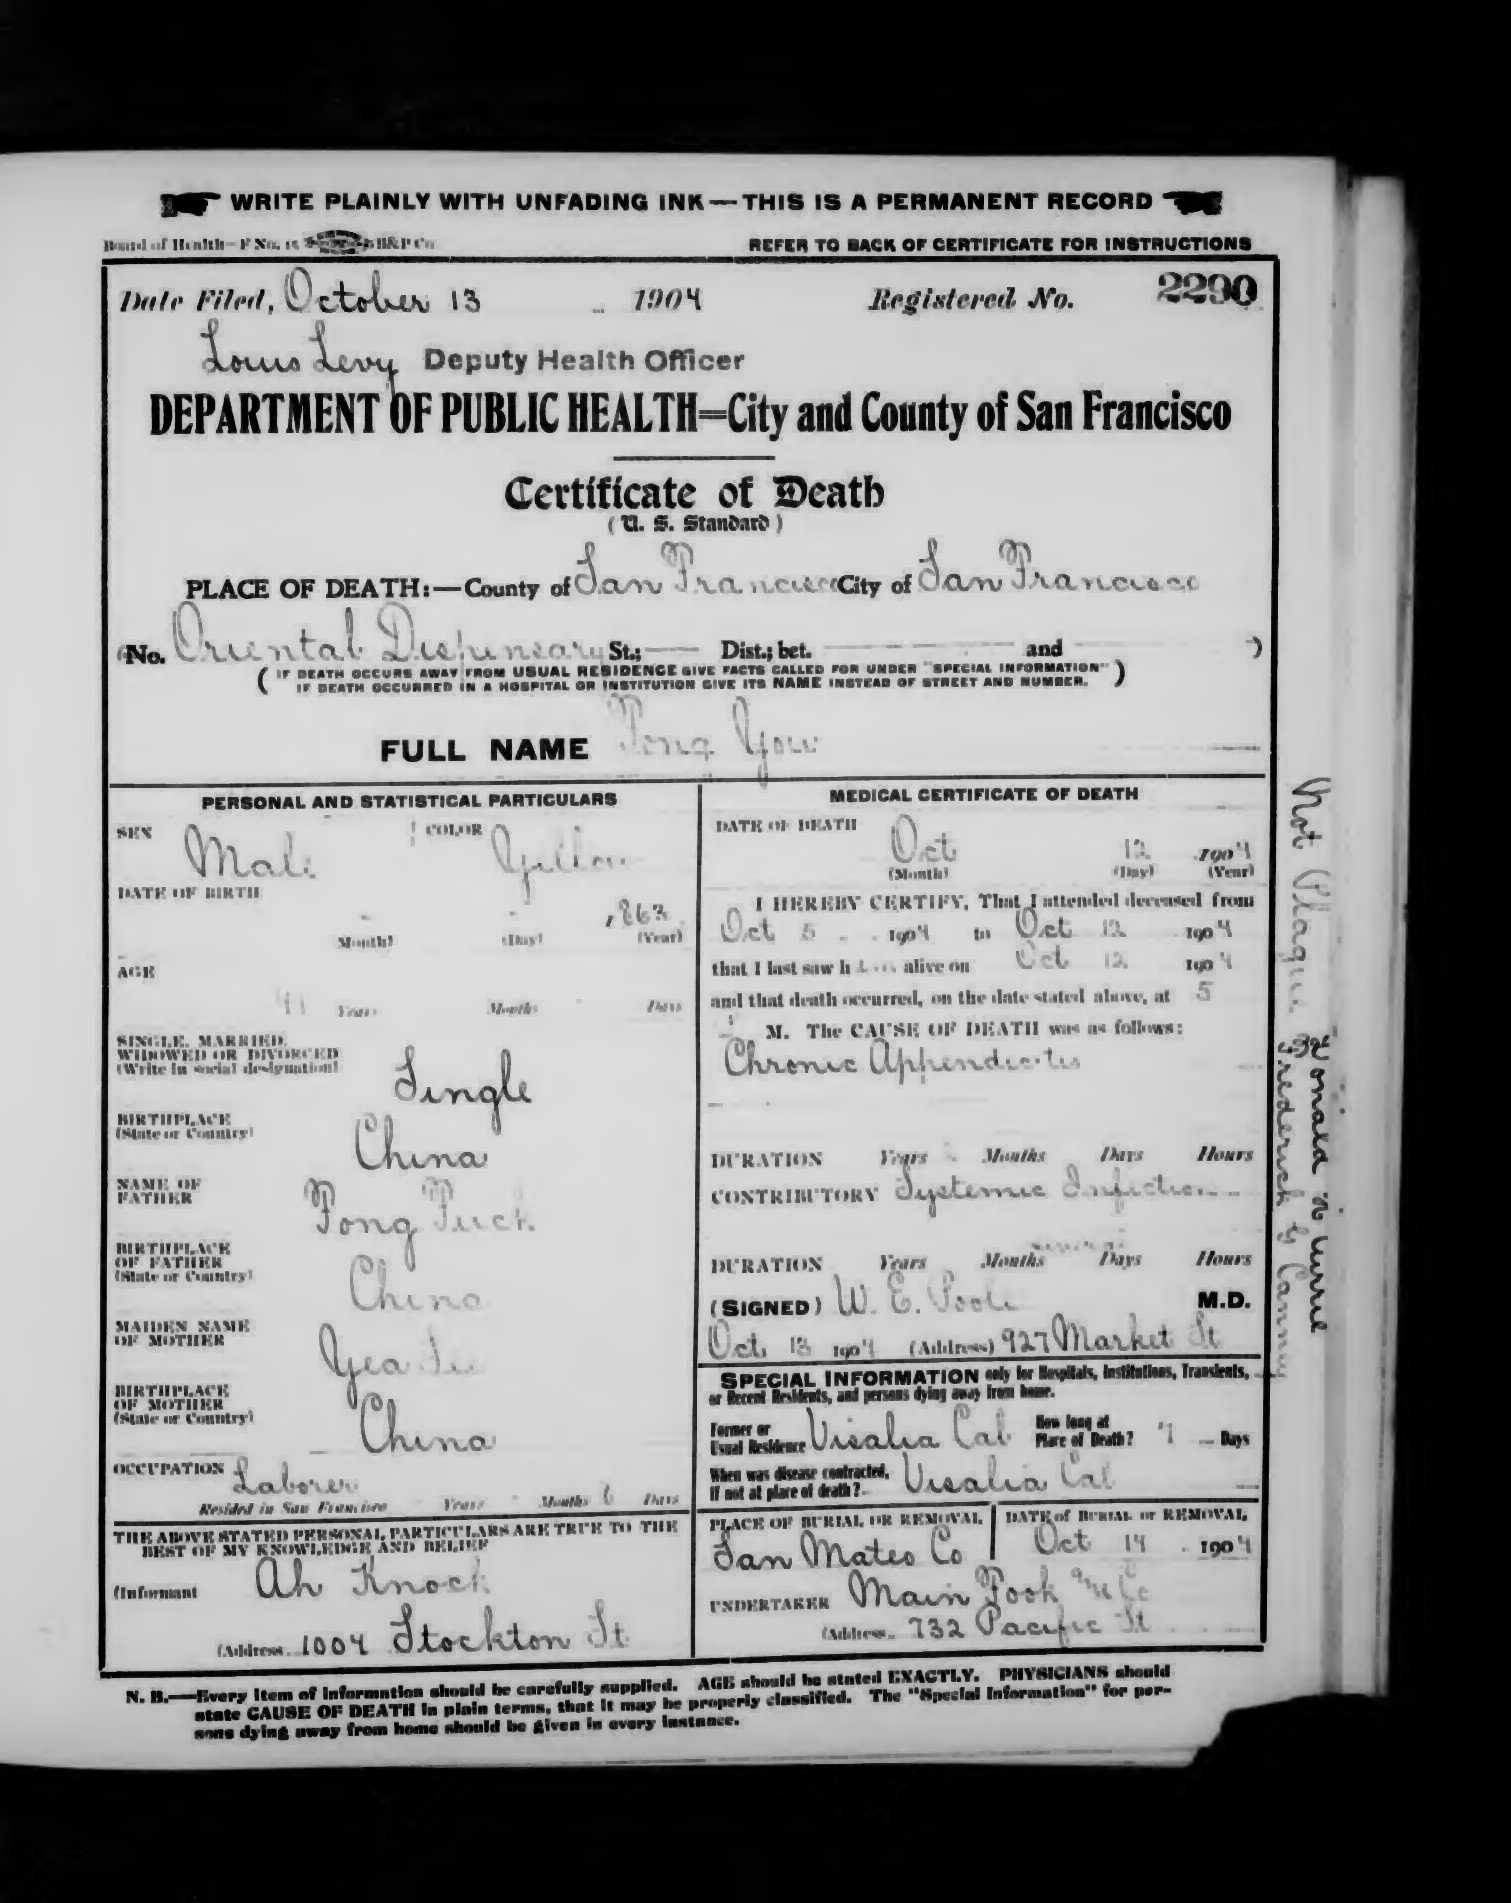 WRITE PLAINLY WITH UNFADING INK—THIS IS A PERMANENT RECORD
Board of Health—F No. 15 B&P Co
REFER TO BACK OF CERTIFICATE FOR INSTRUCTIONS
Date Filed, October 13 1904 Registered No. 2290
Louis Levy Deputy Health Officer
DEPARTMENT OF PUBLIC HEALTH=City and County of San Francisco
Certificate of Death
(U. S. Standard)
PLACE OF DEATH:—County of San Francisco City of San Francisco
No. Oriental Dispensary St.; Dist.; bet. and )
(IF DEATH OCCURS AWAY FROM USUAL RESIDENCE GIVE FACTS CALLED FOR UNDER "SPECIAL INFORMATION"
IF DEATH OCCURRED IN A HOSPITAL OR INSTITUTION GIVE ITS NAME INSTEAD OF STREET AND NUMBER.)
FULL NAME Fong Yow
PERSONAL AND STATISTICAL PARTICULARS
SEX Male COLOR Yellow
DATE OF BIRTH
1863
(Month) (Day) (Year)
AGE
41 Years Months Days
SINGLE, MARRIED,
WIDOWED OR DIVORCED
(Write in social designation) Single
BIRTHPLACE
(State or Country) China
NAME OF
FATHER Fong Fuck
BIRTHPLACE
OF FATHER
(State or Country) China
MAIDEN NAME
OF MOTHER Yea
BIRTHPLACE
OF MOTHER
(State or Country) China
OCCUPATION Laborer
Resided in San Francisco Years Months 6 Days
THE ABOVE STATED PERSONAL PARTICULARS ARE TRUE TO THE
BEST OF MY KNOWLEDGE AND BELIEF
(Informant Ah Knock
(Address 1004 Stockton St
MEDICAL CERTIFICATE OF DEATH
DATE OF DEATH
Oct 12 1904
(Month) (Day) (Year)
I HEREBY CERTIFY, That I attended deceased from
Oct 5 1904 to Oct 12 1904
that I last saw him alive on Oct 12 1904
and that death occurred, on the date stated above, at 5
M. The CAUSE OF DEATH was as follows:
Chronic Appendicitis
DURATION Years Months Days Hours
CONTRIBUTORY Systemic Infection
several
DURATION Years Months Days Hours
(SIGNED) W. E. Poole M.D.
Oct 13 1904 (Address) 927 Market St
SPECIAL INFORMATION only for Hospitals, Institutions, Transients,
or Recent Residents, and persons dying away from home.
Former or
Usual Residence Visalia Cal
How long at
Place of Death? 7 Days
When was disease contracted,
If not at place of death? Visalia Cal
PLACE OF BURIAL OR REMOVAL
San Mateo Co
DATE of BURIAL or REMOVAL
Oct 14 1904
UNDERTAKER Main Fook
(Address 732 Pacific St
Not Plague
Donald H Currie
Frederick G Canney
N. B.—Every item of information should be carefully supplied. AGE should be stated EXACTLY. PHYSICIANS should
state CAUSE OF DEATH in plain terms, that it may be properly classified. The "Special Information" for per-
sons dying away from home should be given in every instance.